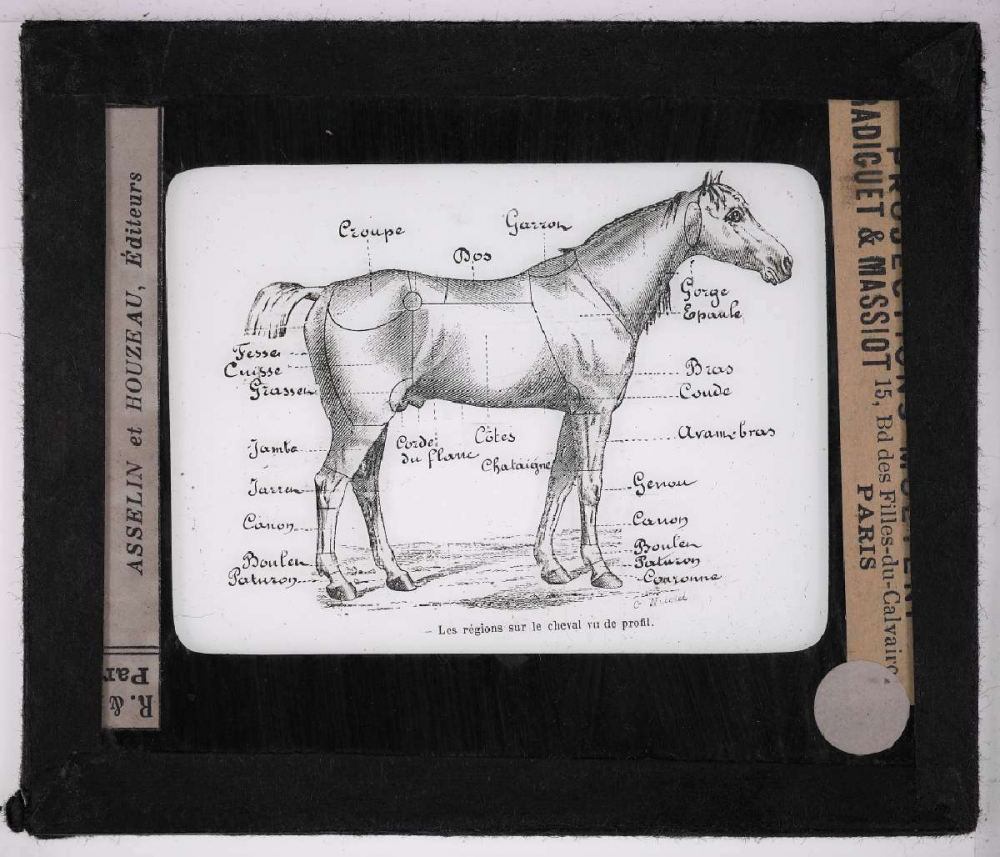 ASSELIN et HOUZEAU, Éditeurs
R. &
Par
Croupe
Garrot
Dos
Gorge
Epaule
Fesse
Cuisse
Grasset
Bras
Coude
Jambe
Corde
du flanc
Côtes
Chataigne
Avant-bras
Jarret
Genou
Canon
Canon
Boulet
Paturon
Boulet
Paturon
Couronne
– Les régions sur le cheval vu de profil.
RADIGUET & MASSIOT
15, Bd des Filles-du-Calvaire
PARIS